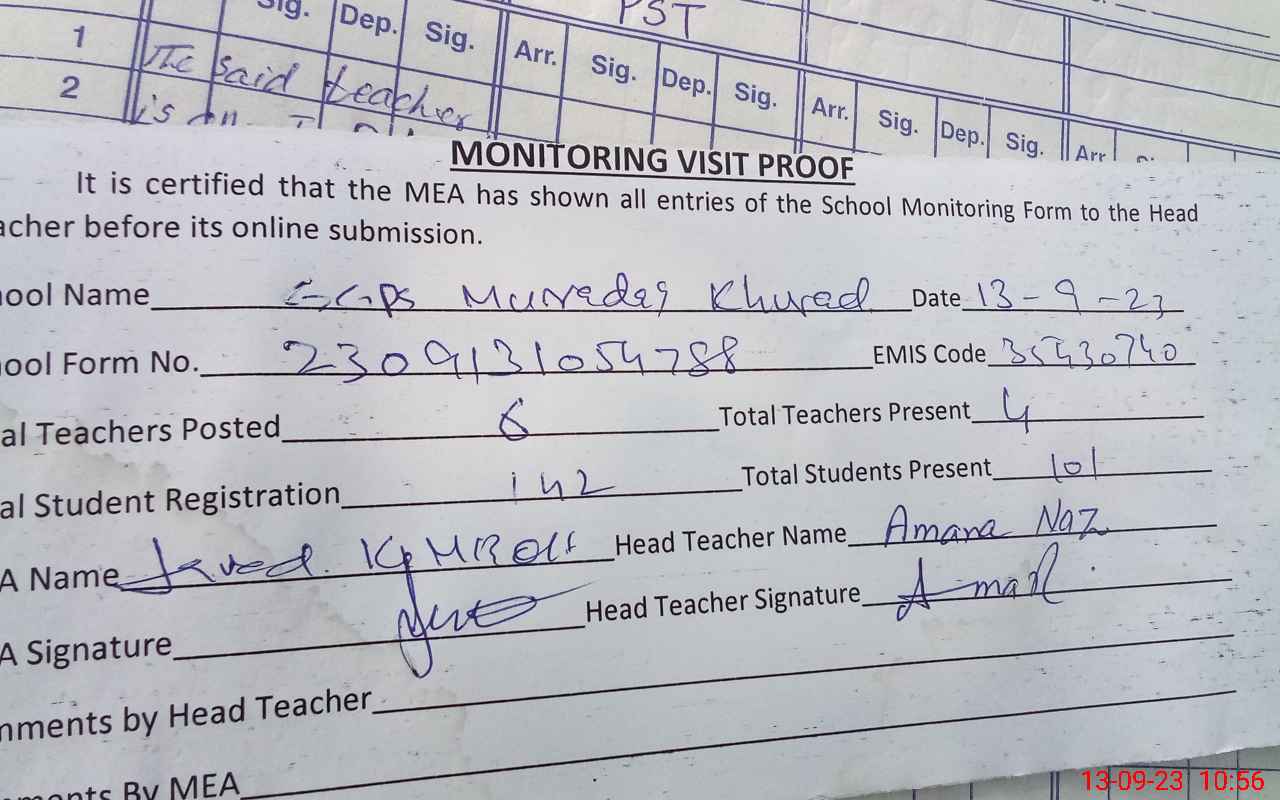 PST
Sig. Dep. Sig. Arr. Sig. Dep. Sig. Arr. Sig. Dep. Sig. Arr
1 The said teacher
2 is on
MONITORING VISIT PROOF
It is certified that the MEA has shown all entries of the School Monitoring Form to the Head
acher before its online submission.
ool Name GGPS Khurad Date 13-9-23
ool Form No. 2309131054788 EMIS Code 35430740
al Teachers Posted 6 Total Teachers Present 4
al Student Registration 142 Total Students Present 101
A Name Javed Head Teacher Name Amara Naz
A Signature Head Teacher Signature
mments by Head Teacher
ments By MEA
13-09-23 10:56